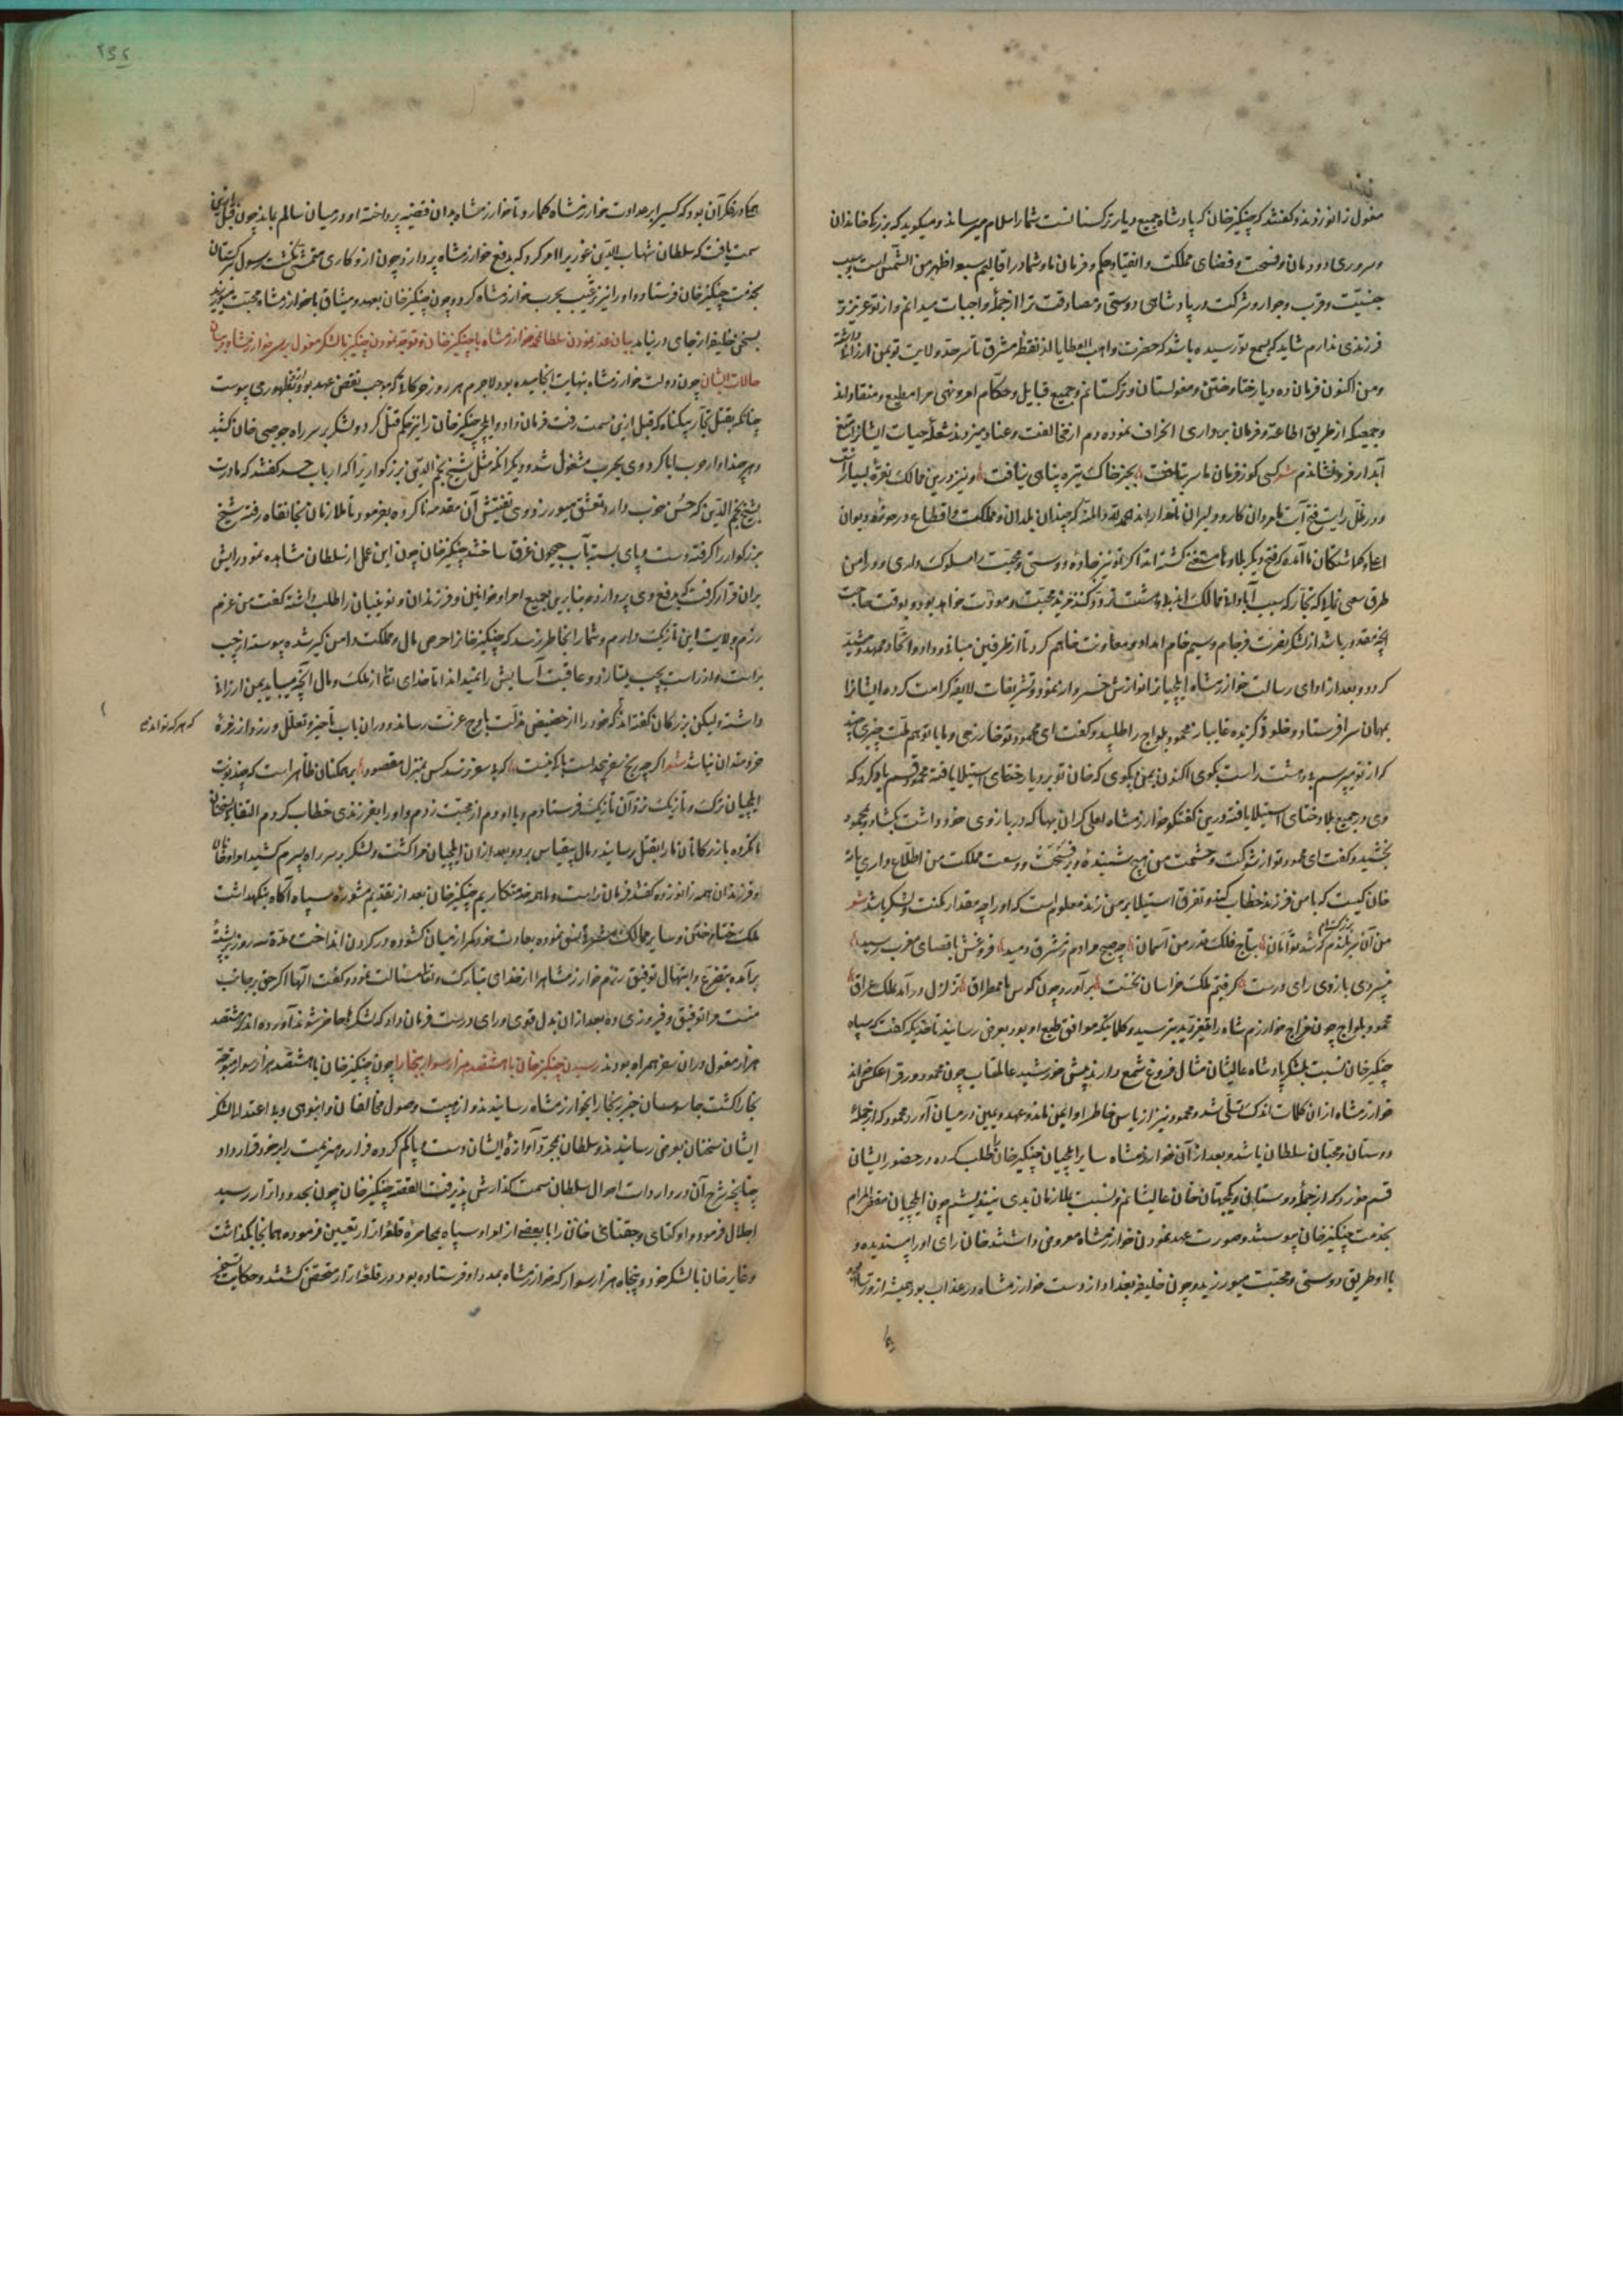 مغول زانو زدند و گفتند که چنگیز خان که پادشاه جمیع دیار ترکستانست شما را سلام میرساند و میگوید که بزرگی خاندان
و سروری دودمان و فسحت و فضای مملکت و انقیاد حکم و فرمان ما و شما در اقالیم سبعه اظهر من الشمس است و بسبب
جنسیت و قرب و جوار و شرکت در پادشاهی دوستی و مصادقت ترا از جمله واجبات میدانم و از تو عزیزتر
فرزندی ندارم شاید که بسمع تو رسیده باشد که حضرت واهب العطایا از نقطه مشرق تا سرحد ولایت تو بمن ارزانی داشته
و من اکنون فرمان ده دیار ختا و ختن و مغولستان و ترکستانم و جمیع قبایل و حکام امر و نهی مرا مطیع و منقاداند
و جمعی که از طریق اطاعت و فرمان برداری انحراف نموده دم از مخالفت و عناد میزدند شعله حیات ایشانرا بتیغ
آبدار فرو نشاندم شعر کسی کو ز فرمان ما سر بتافت بجز خاک تیره پناهی نیافت و نیز درین ممالک نقره بسیارست
و در ظل رایت فتح آیت ما مردان کار و دلیران نامدارند الحمدلله و المنه که چندان بلدان و مملکت در اقطاع و در حوزه دیوان
اعلی گماشتگان ما آمده که فتح دیگر بلاد ما مستغنی گشته اند اگر تو نیز جاده دوستی و محبت را مسلوک داری و در امن
طرق سعی نمای که تجار که سبب آبادانی ممالک اند تردد کنند مزید محبت و مودت خواهد بود و بوقت حاجت
آنچه مقدور باشد از لشکر نصرت فرجام و سیم خام امداد و معاونت خواهم کرد تا از طرفین مبانی وداد و اتحاد ممهد و مشید
گردد و بعد از ادای رسالت خوارزمشاه ایلچیانرا نوازش خسروانه نمود و تشریفات لایقه کرامت کرده ایشانرا
بمهمان سرا فرستاد و خلوت گزیده غایبانه محمود یلواج را طلبید و گفت ای محمود تو خوارزمی و ما با تو هم ملت چیزی چند
که از تو بپرسم باید درست و راست بگوی اکنون بمن بگوی که خان تو بر دیار ختای استیلا یافته محمود قسم یاد کرد که
وی بر جمیع بلاد ختای استیلا یافته درین گفتگو خوارزمشاه لعلی گران بها که در بازوی خود داشت بگشاد و بمحمود
بخشید و گفت ای محمود تو از شوکت و حشمت من هیچ شنیده و بر فسحت و وسعت مملکت من اطلاع داری یا نه
خان کیست که با من فرزند خطاب کند و تفرق استیلا بر من زند معلوم است که او را چه مقدار مکنت و لشکر باشد شعر
بتاج فلک قدر من آسمان چو صبح مرادم ز مشرق دمید فروغش باقصای مغرب رسید
بمردی بازوی رای درست گرفتم ملک خراسان نخست برآورد چون کوس ما طمطراق تزلزل درآمد ملک عراق
محمود یلواج چون مزاج خوارزم شاه را متغیر دید بترسید و کلماتیکه موافق طبع او بود بعرض رسانید تا حدیکه گفت که سپاه
چنگیز خان نسبت بلشکر پادشاه عالیشان مثال فروغ شمع دارند پیش خورشید عالمتاب چون محمود ورق را عکس خواند
خوارزمشاه ازان کلمات اندک تسلی شد و محمود نیز از پاس خاطر او ایمن ماند و عهد و یمین در میان آورد محمود که از جمله
دوستان و محبان سلطان باشد و بعد از آن خوارزمشاه سایر ایلچیان چنگیز خان را طلب کرده در حضور ایشان
قسم خورد که از جمله دوستان و یکجهتان خان عالیشانم و نسبت بملازمان بدی نیندیشم چون ایلچیان مقضی المرام
بخدمت چنگیز خان پیوستند صورت عهد نمودن خوارزمشاه معروض داشتند خان رای او را پسندیده و
با او طریق دوستی و محبت میورزید و چون خلیفه بغداد از دست خوارزمشاه در عذاب بود همیشه از وی
۲۳۲
همگی در فکر آن بود که کسی را بر عداوت خوارزمشاه گمارد تا خوارزمشاه بدان قضیه پرداخته او در میان سالم بماند چون قبل ازین
سمت یافت که سلطان شهاب الدین غوری را امر کرد که بدفع خوارزمشاه پردازد چون ازو کاری متمشی نگشت رسول ترکستان
بخدمت چنگیز خان فرستاد و او را نیز ترغیب بحرب خوارزمشاه کرد و چون چنگیز خان بعهد و میثاق با خوارزمشاه محبت میورزید
بسخن خلیفه از جای در نیامد بیان عذر نمودن سلطان محمد خوارزمشاه با چنگیز خان و توجه نمودن چنگیز با لشکر مغول بر سر خوارزمشاه و بیان
حالات ایشان چون دولت خوارزمشاه بنهایت انجامیده بود لاجرم هر روز حرکاتی که موجب نقض عهد بود ازو بظهور می پیوست
چنانکه بقتل تجار بیگناه که قبل ازین سمت رفت فرمان داد و ایلچی چنگیز خان را نیز حکم قتل کرد و لشکر بر سر راه جوجی خان کشید
و هر چند او از حرب ابا کرد وی بحرب مشغول شد و دیگر آنکه مثل شیخ نجم الدین بزرگوار را که ارباب حسد گفتند که مادرت
بشیخ نجم الدین که حسن خوب دارد تعشق میورزد وی تفتیش آن مقدمه ناکرده بفرمود تا ملازمان بخانقاه رفته شیخ
بزرگوار را گرفته دست و پای بسته بآب جیحون غرق ساختند چنگیز خان چون این عمل از سلطان مشاهده نمود رایش
بران قرار گرفت که بدفع وی پردازد بنابرین جمیع امرا و خوانین و فرزندان و نوئینان را طلب داشته گفت من عزم
رزم ولایت این تازیک دارم و شما را بخاطر نرسد که چنگیز خانرا حرص مال و مملکت دامن گیر شده پیوسته از چپ
براست و از راست بچپ میتازد و عاقبت آسایش را نمیداند اما خدای تعالی از ملک و مال آنچه میباید بمن ارزانی
داشته ولیکن بزرگان گفته اند که خود را از حضیض مذلت باوج عزت رساند و دران باب تاخیر و تعلل ورزد از زمره
که هر که تواند که
خردمندان نباشد شعر اگر چه رنج سفر بیحد است باکی نیست که بی سفر نرسد کس بمنزل مقصود بر همگنان ظاهر است که چند نوبت
ایلچیان ترک و تازیک نزد آن تازیک فرستادم و با او دم از محبت زدم و او را بفرزندی خطاب کردم التفات بسخنان
ما نکرده بازرگانان ما را بقتل رسانید و مال بیقیاس برد و بعد ازان ایلچیان مرا کشت و لشکر بر سر راه پسرم کشید امرا و خانان
و فرزندان همه زانو زده گفتند فرمان تراست و ما همه خدمتکاریم چنگیز خان بعد از تقدیم مشوره سپاه آگاه بنگهداشت
ملک ختا و ختن و سایر ممالک نموده بعادت خود کمر از میان گشوده در گردن انداخت مدت سه روز بر پشته
برآمده بتضرع و ابتهال توفیق رزم خوارزمشاه را از خدای تبارک و تعالی مسالت نمود و گفت الها اگر حق بر جانب
منست مرا توفیق و فیروزی ده بعد ازان بدل قوی و رای درست فرمان داد که لشکرها حاضر شوند آورده اند که هشتصد
هزار مغول دران سفر همراه بودند رسیدن چنگیز خان با هشتصد هزار سوار ببخارا چون چنگیز خان با هشتصد هزار سوار متوجه
بخارا گشت جاسوسان خبر بخارا بخوارزمشاه رسانیدند و از هیبت وصول مخالفان و انبوهی و بی اعتدالی لشکر
ایشان سخنان بعرض رسانیدند و سلطان بمجرد آوازه ایشان دست و پا گم کرده فرار و هزیمت را بر خود قرار داد
چنانچه شرح آن در واردات احوال سلطان سمت گذارش پذیرفت القصه چنگیز خان چون بحدود اترار رسید
اجلال فرمود و اوکتای و جغتای خان را با بعضی از امرا و سپاه بمحاصره قلعه اترار تعیین فرموده همانجا بگذاشت
و غایر خان با لشکر خود و پنجاه هزار سوار که خوارزمشاه بمدد او فرستاده بود در قلعه اترار متحصن گشتند و حکایت تسخیر